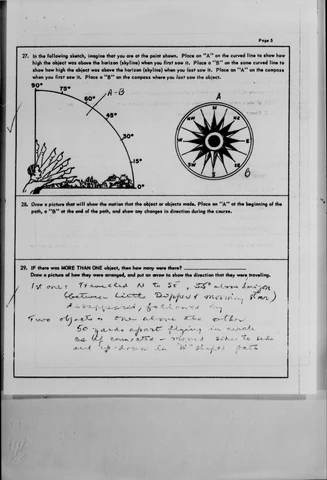 Page 5
27. In the following sketch, imagine that you are at the point shown. Place an "A" on the curved line to show how
high the object was above the horizon (skyline) when you first saw it. Place a "B" on the same curved line to
show how high the object was above the horizon (skyline) when you last saw it. Place an "A" on the compass
when you first saw it. Place a "B" on the compass where you last saw the object.
90°
75°
60°
A-B
45°
30°
15°
0°
A
N
NE
E
SE
S
SW
W
NW
B
28. Draw a picture that will show the motion that the object or objects made. Place an "A" at the beginning of the
path, a "B" at the end of the path, and show any changes in direction during the course.
29. IF there was MORE THAN ONE object, then how many were there?
Draw a picture of how they were arranged, and put an arrow to show the direction that they were traveling.
1st one: Travelled N to SE, 55° above horizon
(between Little Dipper & morning star)
disappeared, followed by
Two objects - one above the other
50 yards apart flying in circle
as if connected - moved side to side
and up-down in shaped path